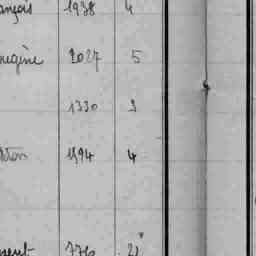 ançois 1938 4
ougène 2027 5
1330 3
ston 1594 4
ment 776 21